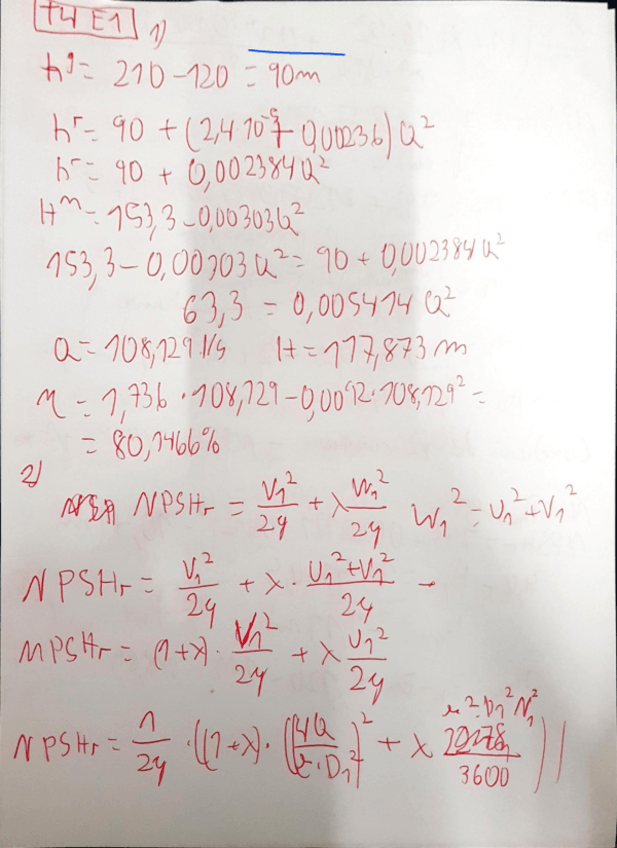 T4 E1 1)
h^g = 210 - 120 = 90m
h^r = 90 + (2,4 10^-5 + 0,00236) Q²
h^r = 90 + 0,002384 Q²
H^m = 153,3 - 0,00303Q²
153,3 - 0,00303 Q² = 90 + 0,002384 Q²
63,3 = 0,005414 Q²
Q = 108,129 l/s H = 117,873 m
η = 1,736 · 108,129 - 0,0092 · 108,129² =
= 80,1466%
2)
NPSHr = V₁²/2g + λ W₁²/2g W₁² = U₁² + V₁²
NPSHr = V₁²/2g + λ · U₁² + V₁²/2g
NPSHr = (1+λ) · V₁²/2g + λ U₁²/2g
NPSHr = 1/2g · ((1+λ) · (4Q/π·D₁²)² + λ π²·D₁²N₁²/3600)